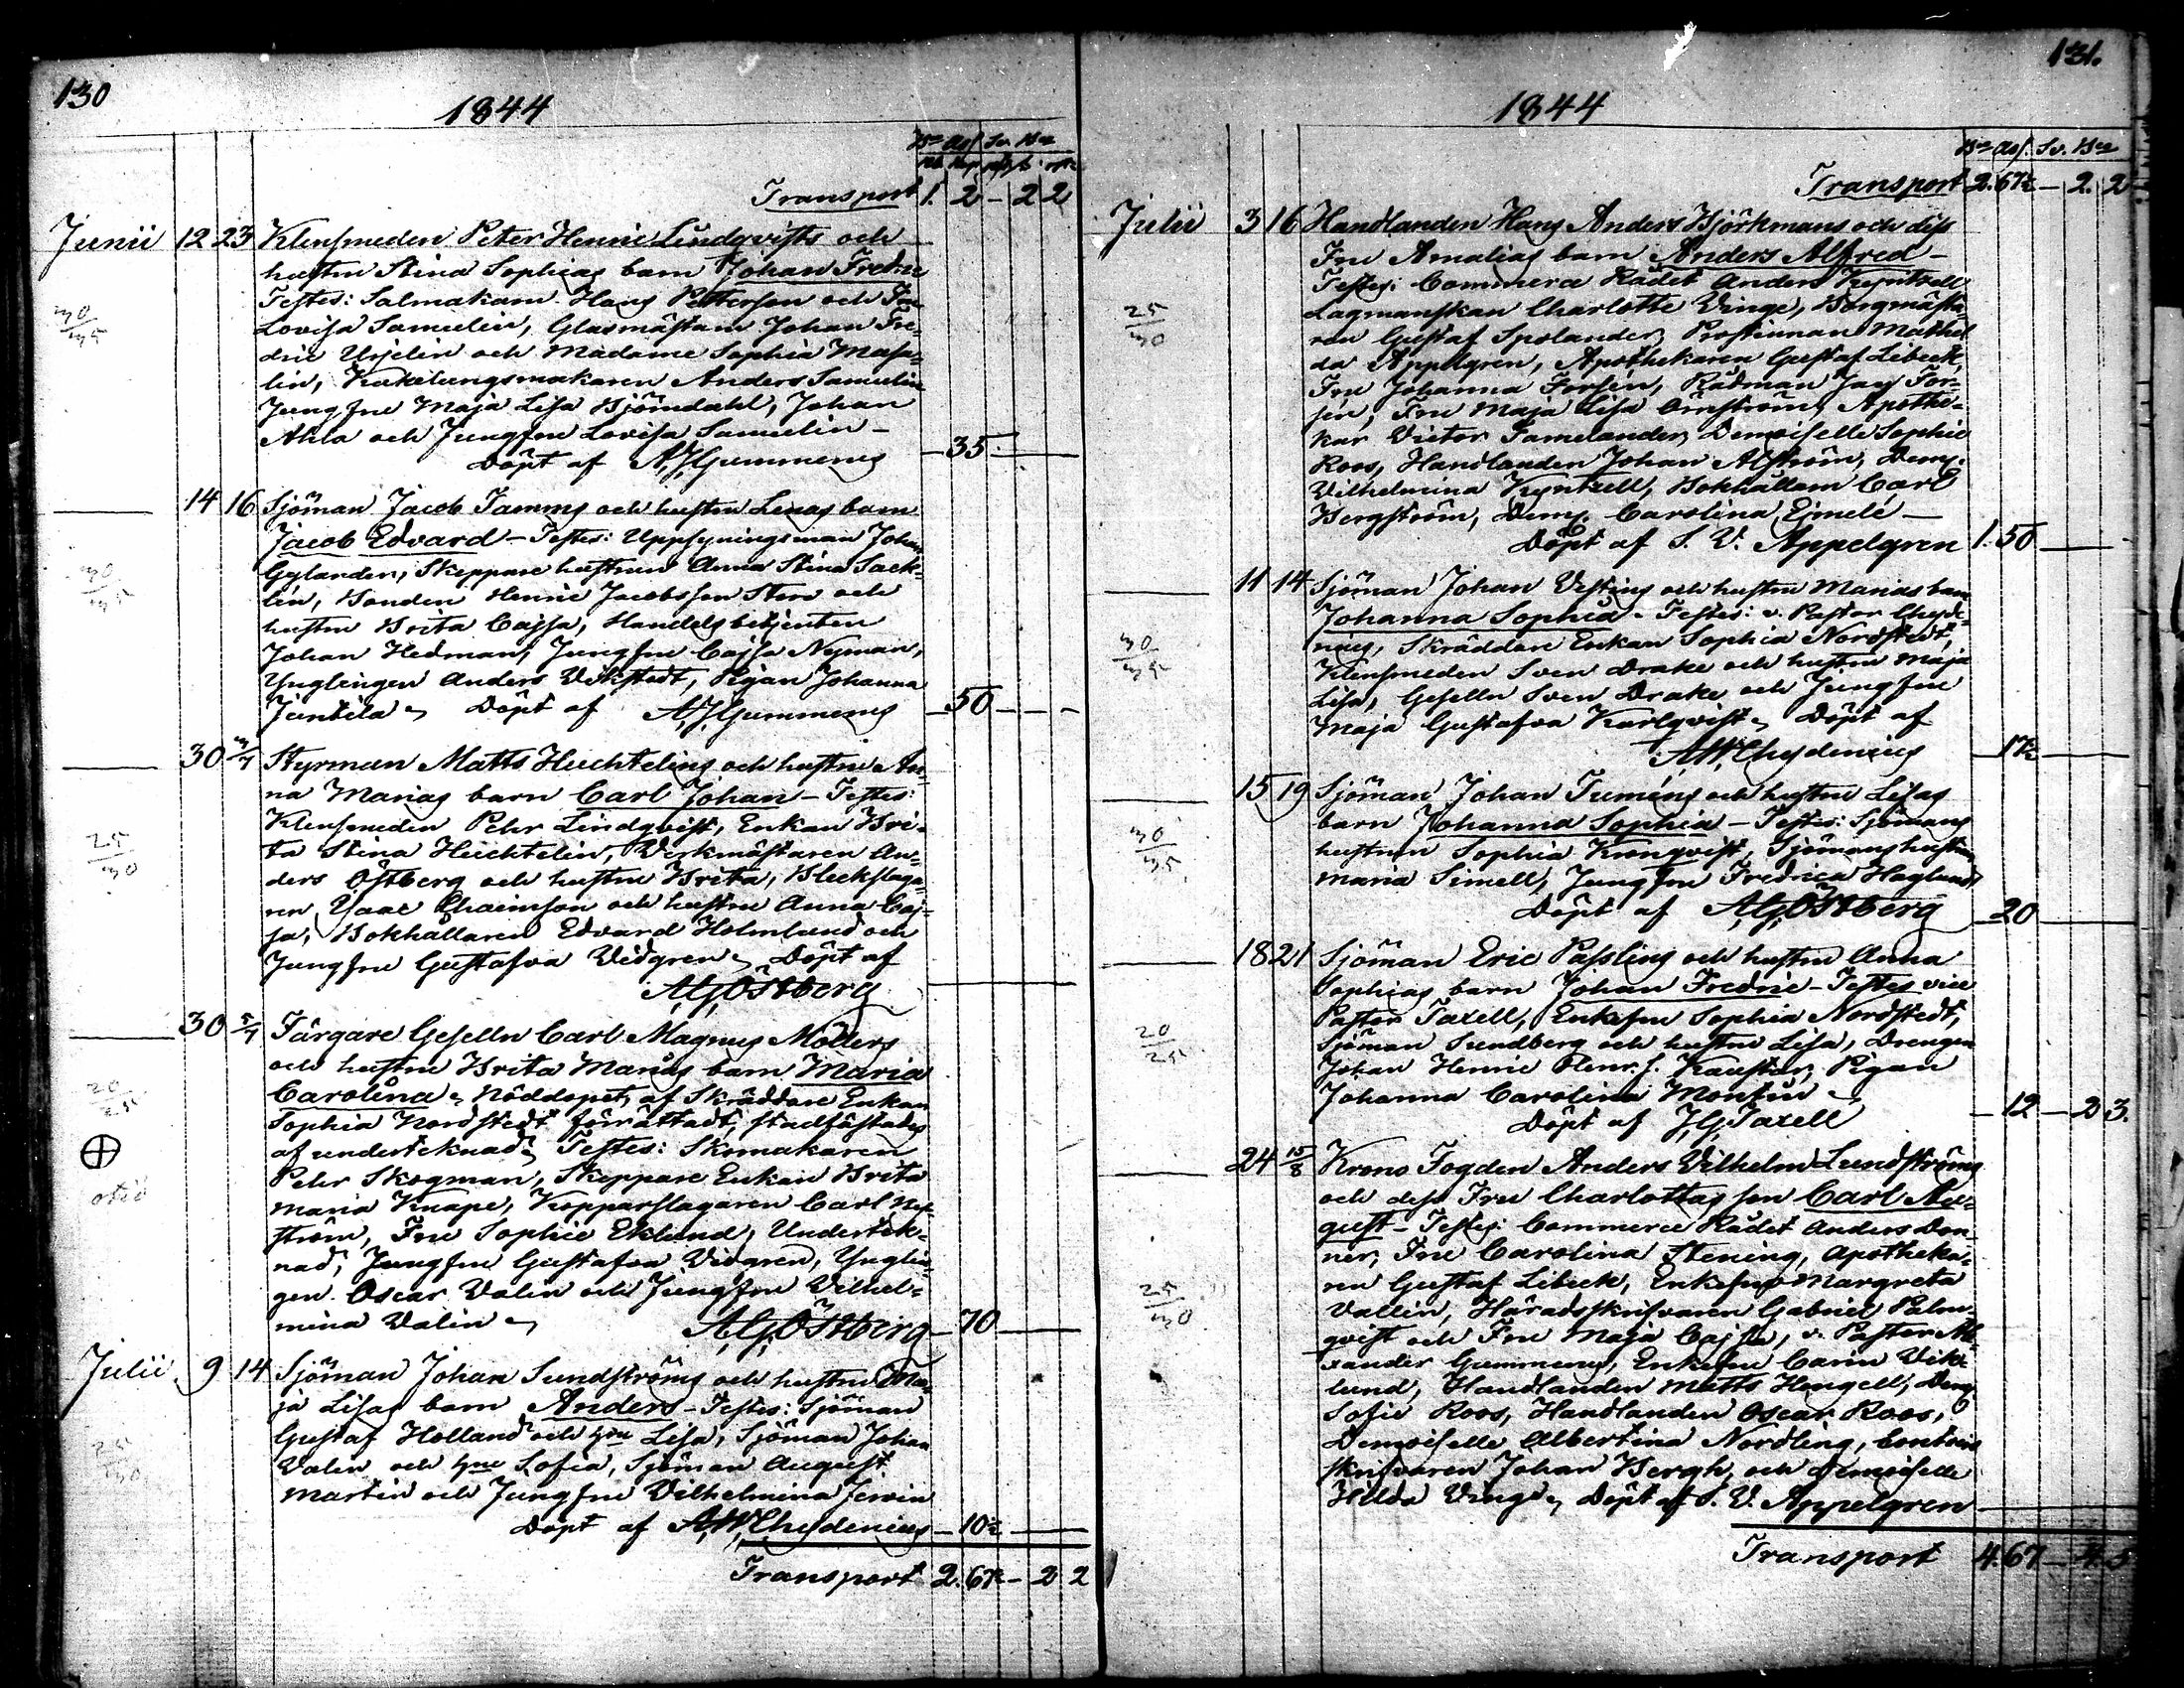 130
1844
Bco Ass. Sv. Bco
Transport 1. 2 - 2 2
Junii 12 23 Klensmeden Peter Henric Lindqvists och
hustru Stina Sophias barn Johan Fredric
Testes: Salmakarn Hans Petterson och Fru
30/35
Lovisa Samuelin, Glasmästarn Johan Fre-
dric Urjelin och Madame Sophia Masa-
lin, Kakelungsmakaren Anders Samuelin
Jungfru Maja Lisa Björndahl, Johan
Ahla och Jungfru Lovisa Samuelin -
Döpt af A,J,Gummerus - 35 -
14 16 Sjöman Jacob Tamms och hustru Lenas barn
Jacob Edvard - Testes: Uppsyningsman Johan
30/35
Gylander, Skeppare hustrun Anna Stina Sack-
lén, Bonden Henric Jacobsson Stor och
hustru Brita Cajsa, Handelsbetjenten
Johan Hedman, Jungfru Cajsa Nyman,
Ynglingen Anders Vikstedt, Pigan Johanna
Juntila Döpt af A,J,Gummerus - 50 - - -
30 3/7 Styrman Matts Huchtelins och hustru An-
na Marias barn Carl Johan - Testes:
Klensmeden Pehr Lindqvist, Enkan Bri-
25/30
ta Stina Huchtelin, Verkmästaren An-
ders Östberg och hustru Brita, Bleckslaga-
ren Isaac Chaimson och hustru Anna Caj-
sa, Bokhållaren Edvard Holmlund och
Jungfru Gustafva Vidgren Döpt af
A,G,Östberg
30 5/7 Färgare Geselln Carl Magnus Möllers
och hustru Brita Marias barn Maria
20/25
Carolina Nöddopet af Skräddare Enkan
Sophia Nordstedt förrättadt, stadfästades
af undertecknad Testes: Skomakaren
Pehr Skogman, Skeppare Enkan Brita
Maria Knape, Kopparslagaren Carl Ny-
ström, Fru Sophie Eklund, Underteck-
nad, Jungfru Gustafva Vidgren, Ynglin-
gen Oscar Valin och Jungfru Vilhel-
mina Valin A,G,Östberg - 70
Julii 9 14 Sjöman Johan Sundströms och hustru Ma-
ja Lisas barn Anders - Testes: Sjöman
Gustaf Holland och hru Lisa, Sjöman Johan
25/30
Valin och hru Sofia, Sjöman August
Martin och Jungfru Vilhelmina
Döpt af A,W,Chydenius - 10½
Transport 2. 67½ - 2 2
131.
1844
Bco Ass. Sv. Bco
Transport 2. 67½ - 2. 2
Julii 3 16 Handlanden Hans Anders Björkmans och dess
Fru Amalias barn Anders Alfred -
Testes: Commerce Rådet Anders Kyntzell
25/30
Lagmanskan Charlotte Vinge, Borgmästa-
ren Gustaf Spolander, Prostinnan Mathil
da Appelgren, Apothekaren Gustaf Libeck,
Fru Johanna Forsén, Rådman Forr-
sén, Fru Maja Lisa Örnström, Apothe-
kar Victor Tamelander, Demoiselle Sophie
Roos, Handlanden Johan Alström, Dems.
Vilhelmina Kyntzell, Bokhållarn Carl
Bergström, Dems. Carolina Eimelé -
Döpt af S. V. Appelgren 1. 50
11 14 Sjöman Johan Vestins och hustru Marias barn
Johanna Sophia - Testes: v. Pastor Chyde-
30/35
nius, Skräddare Enkan Sophia Nordstedt,
Klensmeden Sven Drake och hustru Maja
Lisa, Geselln Sven Drake och Jungfru
Maja Gustafva Karlqvist Döpt af
A,W,Chydenius - 17½
15 19 Sjöman Johan Tumins och hustru Lisas
barn Johanna Sophia - Testes: Sjömans
30/35
hustrun Sophia Kronqvist, Sjömans hustrun
Maria Simell, Jungfru Fredrica Haglund
Döpt af A,G,Östberg 20
18 21 Sjöman Eric Passlins och hustru Anna
Sophias barn Johan Fredric - Testes vice
Pastor Taxell, Enkefru Sophia Nordstedt,
20/25
Sjöman Sundberg och hustru Lisa, Drengen
Johan Henric Henr. s. Kaustar, Pigan
Johanna Carolina Montin
Döpt af J,G,Taxell - 12 - 2 3.
24 15/8 Krono Fogden Anders Vilhelm Lundströms
och dess Fru Charlottas son Carl Au-
gust - Testes: Commerce Rådet Anders Don-
ner, Fru Carolina Stening, Apotheka-
ren Gustaf Libeck, Enkefru Margreta
25/30
Vallin, Häradsskrifvaren Gabriel Palm-
qvist och Fru Maja Cajsa, v. Pastor Al-
xander Gummerus, Enkefru Carin Vik-
lund, Handlanden Matts Hongell, Dems.
Sofie Roos, Handlanden Oscar Roos,
Demoiselle Albertina Nordling, Contoirs
skrifvaren Johan Bergh, och Demoiselle
Hilda Vinge Döpt af S. V. Appelgren
Transport 4. 67 - 4. 5